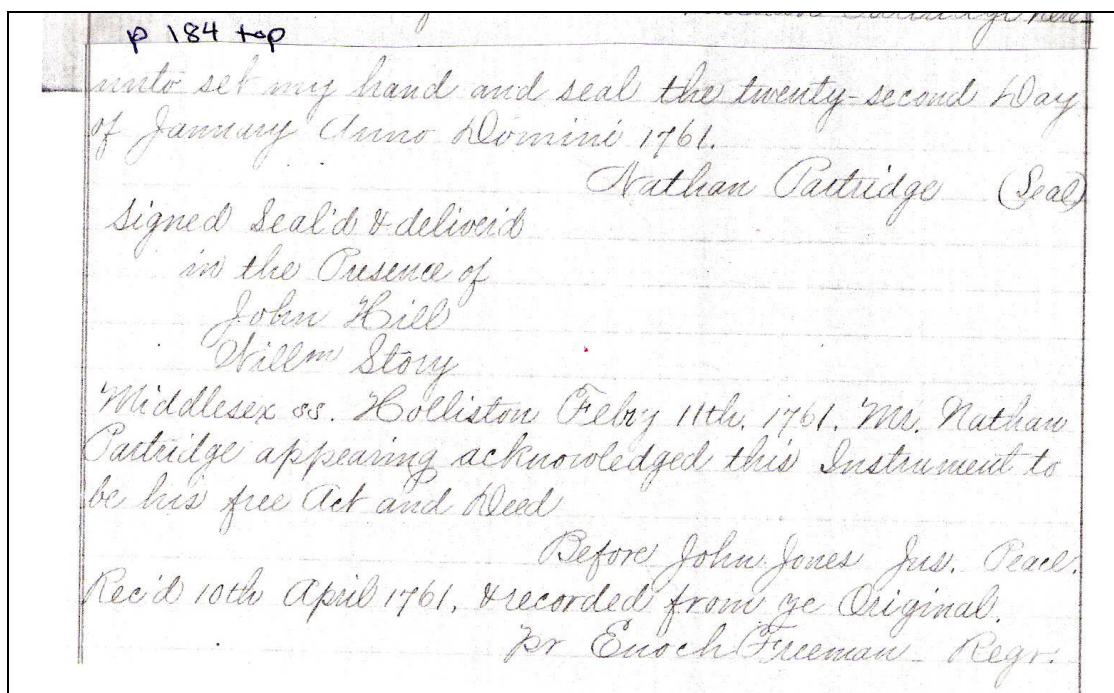 Partridge here
p 184 top
unto set my hand and seal the twenty-second Day
of January Anno Domini 1761.
Nathan Partridge (Seal)
Signed Seal'd & deliver'd
in the Presence of
John Hill
Willm Story
Middlesex ss. Holliston Febry 11th. 1761. Mr. Nathan
Partridge appearing acknowledged this Instrument to
be his free Act and Deed
Before John Jones Jus. Peace.
Rec'd 10th April 1761, & recorded from ye Original.
pr Enoch Freeman Regr.